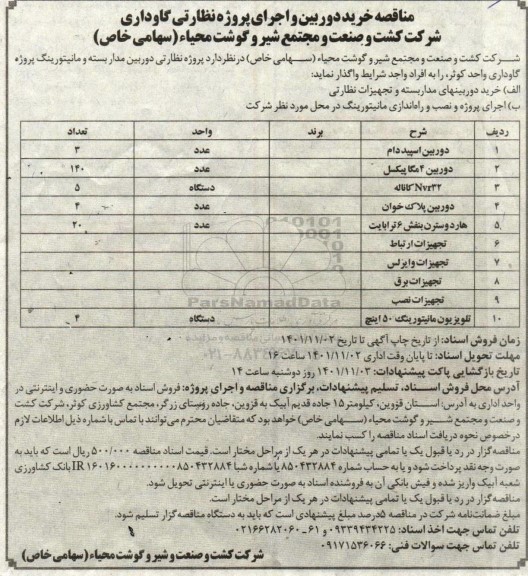 مناقصه خرید دوربین و اجرای پروژه نظارتی گاوداری
شرکت کشت و صنعت و مجتمع شیر و گوشت محیاء (سهامی خاص)
شرکت کشت و صنعت و مجتمع شیر و گوشت محیاء (سهامی خاص) در نظر دارد پروژه نظارتی دوربین مدار بسته و مانیتورینگ پروژه
گاوداری واحد کوثر، را به افراد واجد شرایط واگذار نماید:
الف) خرید دوربینهای مداربسته و تجهیزات نظارتی
ب) اجرای پروژه و نصب و راه‌اندازی مانیتورینگ در محل مورد نظر شرکت
ردیف شرح برند واحد تعداد
۱ دوربین اسپید دام عدد ۳
۲ دوربین ۴ مگا پیکسل عدد ۱۴۰
۳ Nvr۳۲ کاناله دستگاه ۵
۴ دوربین پلاک خوان عدد ۴
۵ هارد وسترن بنفش ۶ ترابایت عدد ۲۰
۶ تجهیزات ارتباط
۷ تجهیزات وایرلس
۸ تجهیزات برق
۹ تجهیزات نصب
۱۰ تلویزیون مانیتورینگ ۵۰ اینچ دستگاه ۴
ParsNamadData
زمان فروش اسناد: از تاریخ چاپ آگهی تا تاریخ ۱۴۰۱/۱۱/۰۲
مهلت تحویل اسناد: تا پایان وقت اداری ۱۴۰۱/۱۱/۰۲ ساعت ۱۶
تاریخ بازگشایی پاکت پیشنهادات: ۱۴۰۱/۱۱/۰۳ روز دوشنبه ساعت ۱۴
آدرس محل فروش اسناد، تسلیم پیشنهادات، برگزاری مناقصه و اجرای پروژه: فروش اسناد به صورت حضوری و اینترنتی در
واحد اداری به آدرس: استان قزوین، کیلومتر ۱۵ جاده قدیم آبیک به قزوین، جاده روستای زرگر، مجتمع کشاورزی کوثر، شرکت کشت
و صنعت و مجتمع شیر و گوشت محیاء (سهامی خاص) خواهد بود که متقاضیان محترم می‌توانند با تماس با شماره ذیل اطلاعات لازم
در خصوص نحوه دریافت اسناد مناقصه را کسب نمایند.
مناقصه گزار در رد یا قبول یک یا تمامی پیشنهادات در هر یک از مراحل مختار است. قیمت اسناد مناقصه ۵۰۰/۰۰۰ ریال است که باید به
صورت وجه نقد پرداخت شود و یا به حساب شماره ۸۵۰۴۳۲۸۸۴ یا شماره شبا بانک کشاورزی
شعبه آبیک واریز شده و فیش بانکی آن به فروشنده اسناد به صورت حضوری یا اینترنتی تحویل شود.
مناقصه‌گزار در رد یا قبول یک یا تمامی پیشنهادات در هر یک از مراحل مختار است.
مبلغ ضمانت‌نامه شرکت در مناقصه ۵ درصد مبلغ پیشنهادی است که باید به دستگاه مناقصه گزار تسلیم شود.
تلفن تماس جهت اخذ اسناد: ۰۹۳۳۹۴۳۴۲۲۵ و ۶۱-۰۲۱۶۶۲۸۲۰۶۰
تلفن تماس جهت سوالات فنی: ۰۹۱۷۱۵۳۶۰۶۶
شرکت کشت و صنعت و شیر و گوشت محیاء (سهامی خاص)